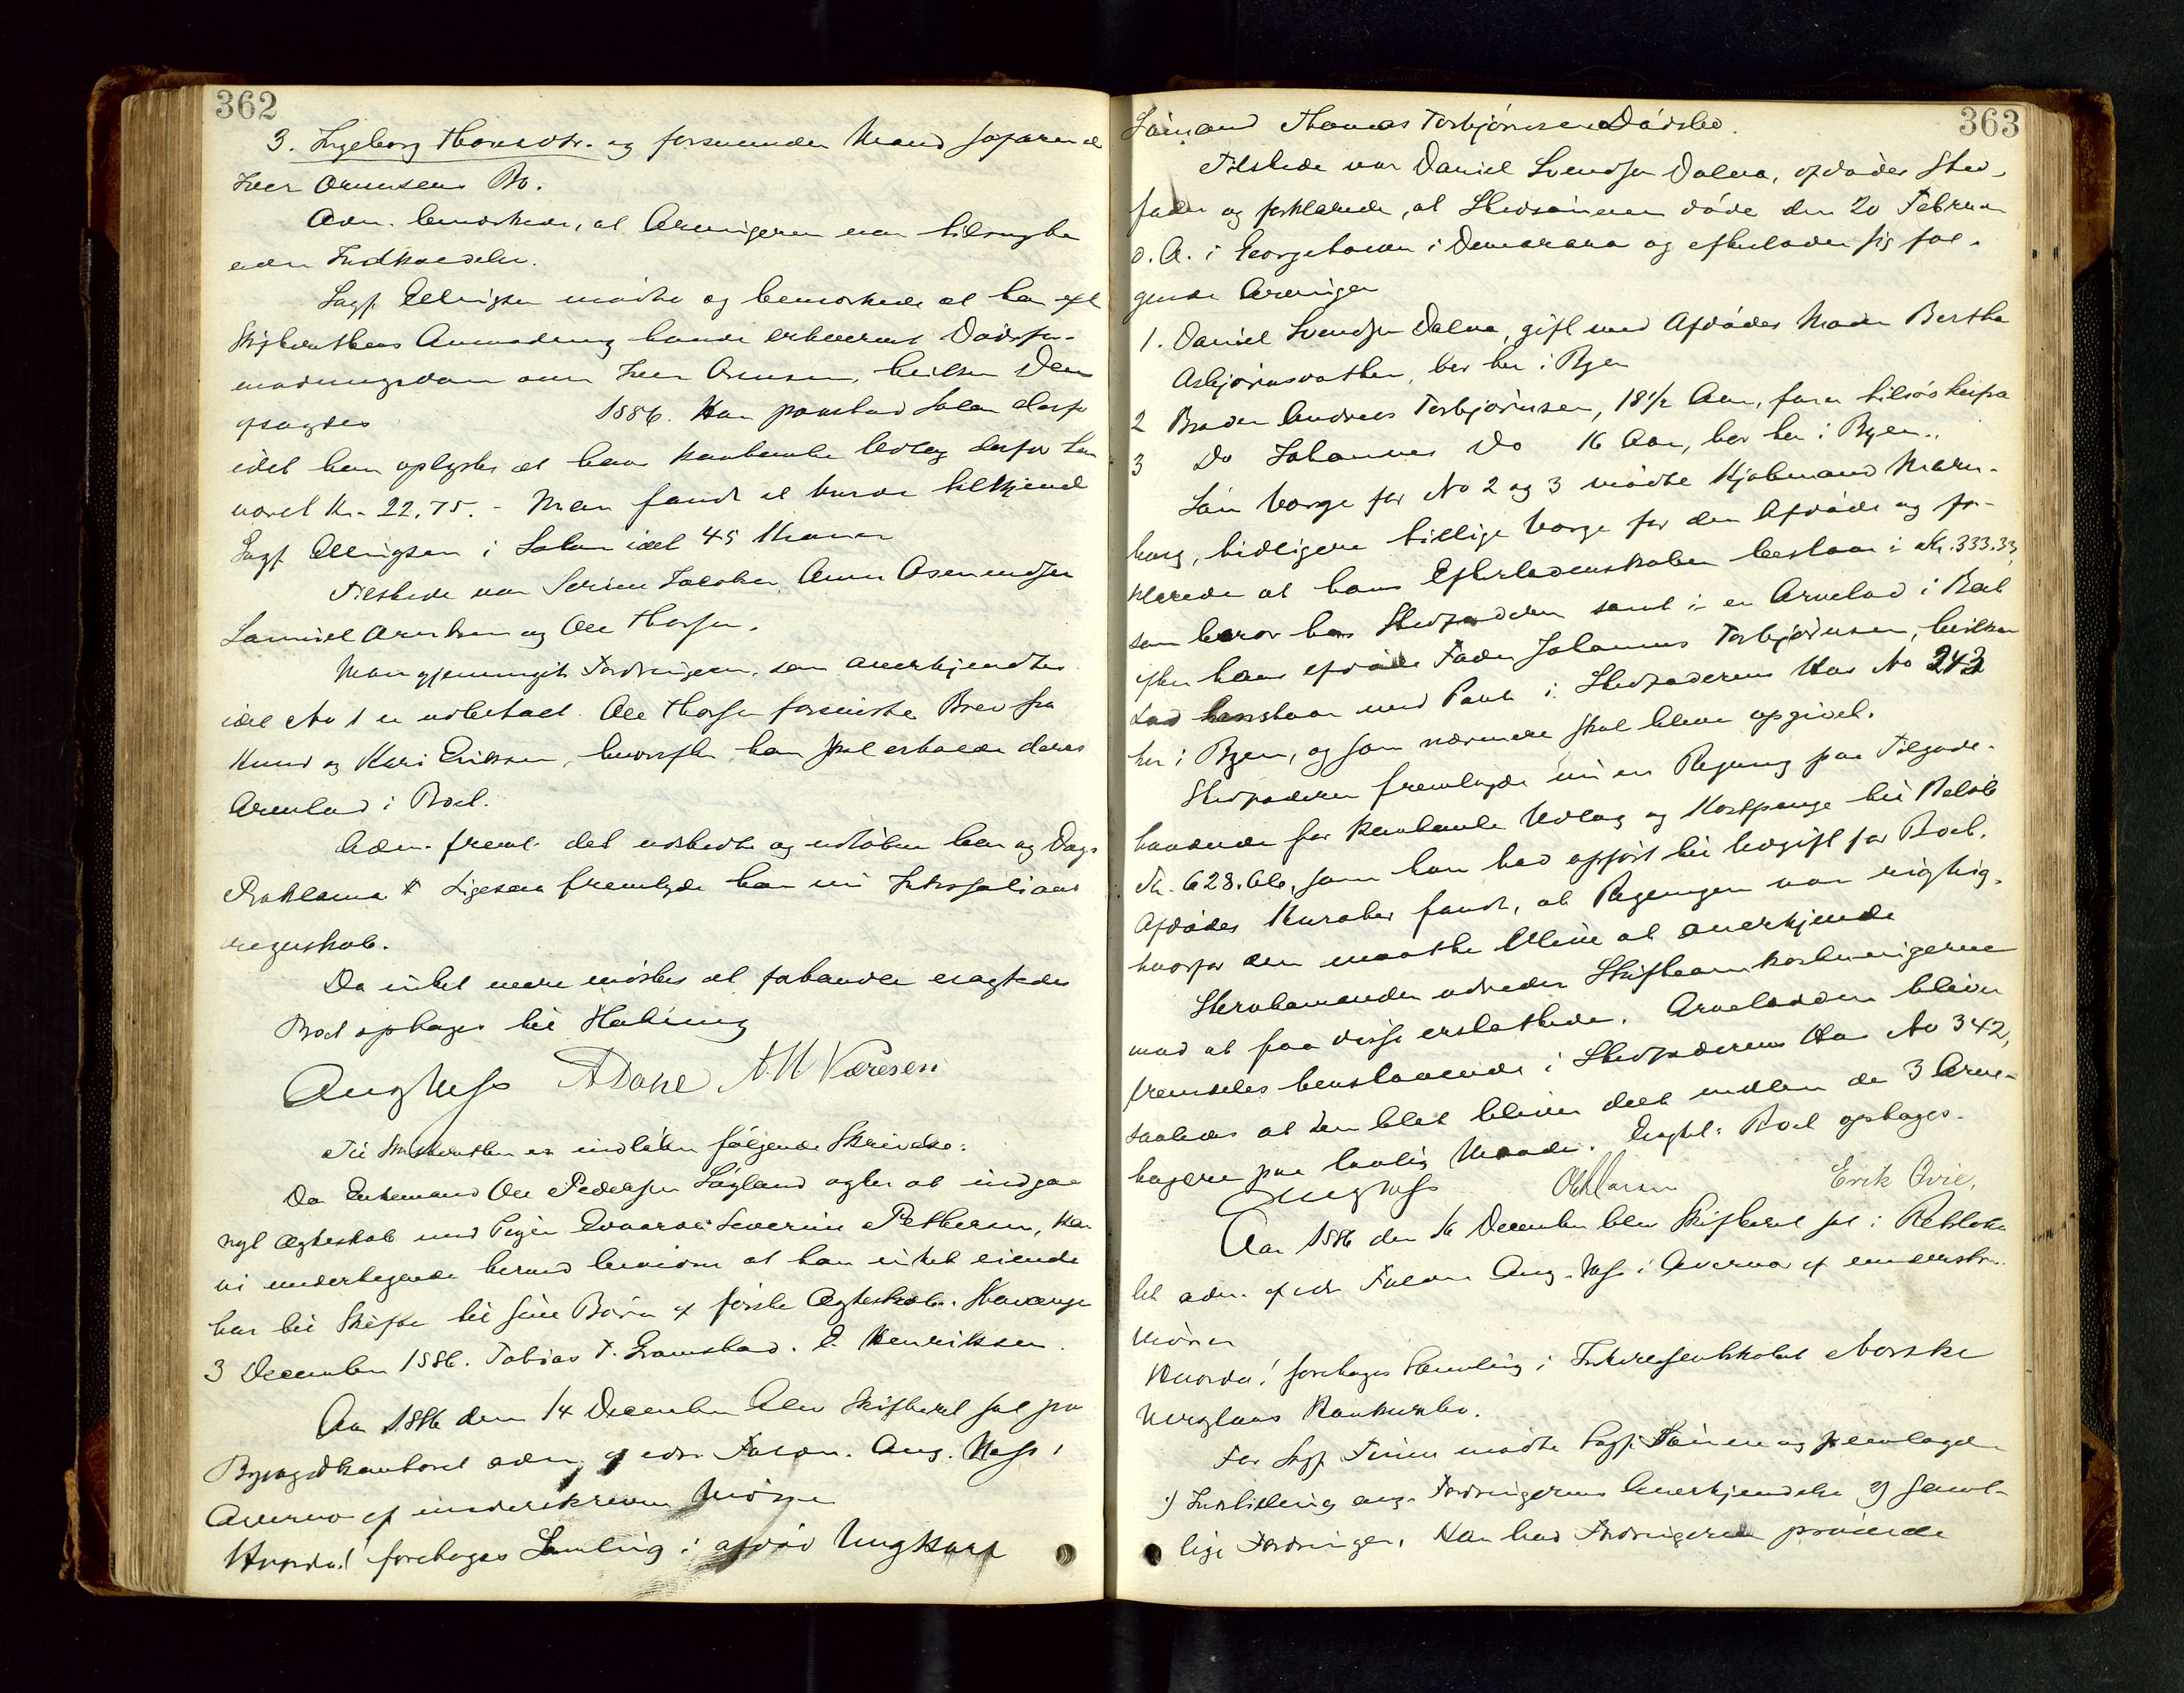 362
3. Ingeborg Thorsdtr. og forsvunden Mand Søfarende
Iver Arnesens Bo.
Adm. bemærkede, at Arvingerne var tilsagte
uden Indkaldelse.
Sagf. Ellingsen mødte og bemærkede at han efter
Skifterettens Anmodning havde erhvervet Dødsfor-
modningsdom over Iver Arnesen, hvilken Dom
afsagdes 1886. Han paastod Salær derfor
idet han oplyste at hans kontante Udlæg derfor har
været Kr. 22,75. - Man fandt at burde tilkjende
Sagf. Ellingsen i Salær ialt 45 Kroner
Tilstede var Serine Jacobsen, Anne Asmundsen
Samuel Arnesen og Ole Thorsen.
Man gjennemgik Fordringerne, som anerkjendtes
idet No 1 er udbetalt. Ole Thorsen foreviste Brev fra
Knud og Kari Eriksen, hvorefter han skal erholde deres
Arvelod i Boet.
Adm. freml. det udstedte og udløbne Aar og Dags
Proklama. Ligesaa fremlagde han nu Inkassations
regnskab.
Da intet mere mødtes at forhandle eragtedes
Boet optages til Slutning
Aug Hess A Dahl A. M Køresen
Til Skifteretten er indløben følgende Skrivelse:
Da Enkemand Ole Pedersen Søyland agter at indgaa
nyt Ægteskab med Pigen Edvarda Severine Pettersen, kan
vi undertegnede herved bevidne at han intet eiende
har til Skifte til sine Børn af første Ægteskab. Stavanger
3 December 1886. Tobias T. Gramstad. E. Henriksen.
Aar 1886 den 14 December blev Skifteret sat paa
Byfogedkontoret adm. af edsv. Fuldm. Aug. Hess i
Overvær af underskrevne Vidner
Hvorda! foretoges Samling i afdød Ungkarl
363
Sømand Thomas Torbjørnsens Dødsbo.
Tilstede var Daniel Svendsen Dalva, afdødes Sted-
fader og forklarede, at Stedsønnen døde den 20 Februar
d. A. i Georgetown i Demarara og efterlader sig føl-
gende Arvinger
1. Daniel Svendsen Dalva, gift med Afdødes Moder Bertha
Asbjørnsdatter, bor her i Byen
2 Broder Andreas Torbjørnsen, 18 1/2 Aar, farer tilsøs herfra
3 Do Johannes Do 16 Aar, bor her i Byen..
Som Værge for No 2 og 3 mødte Kjøbmand Marn-
burg, tidligere tillige Værge for den Afdøde og for-
klarede at hans Efterladenskaber bestaar i Kr. 333.33,
som beror hos Stedfaderen samt i en Arvelod i Boet
efter hans afdøde Fader Johannes Torbjørnsen, hvilken
Lod henstaar med Pant i Stedfaderens Hus No 242
her i Byen, og som nærmere skal blive opgivet.
Stedfaderen fremlagde nu en Regning paa Tilgode-
havende for kontante Udlæg og Kostpenge til Beløb
Kr. 628.66, som han har opført til Udgift for Boet.
Afdødes Kurator fandt, at Regningen var rigtig,
hvorfor den maatte blive at anerkjende
Stervbomanden udreder Skifteomkostningerne
mod at faa disse erstattede. Arvelodden bliver
fremdeles henstaaende i Stedfaderens Hus No 342,
saaledes at den blot bliver delt mellem de 3 Arve-
tagere paa lovlig Maade. Eragtet: Boet optages.
Aug Hess Erik Qvie,
Aar 1886 den 16 December blev Skifteret sat i Retsloka
let adm. af edsv. Fuldm. Aug. Hess i Overvær af underskr.
Vidner
Hvorda! foretoges Samling i Interessentskabet Norske
Konkursbo.
For Sagf. mødte Sagf. og fremlagde
Indstilling ang. Fordringernes Anerkjendelse af samt-
lige Fordringer. Han har Fordringerne prøvede